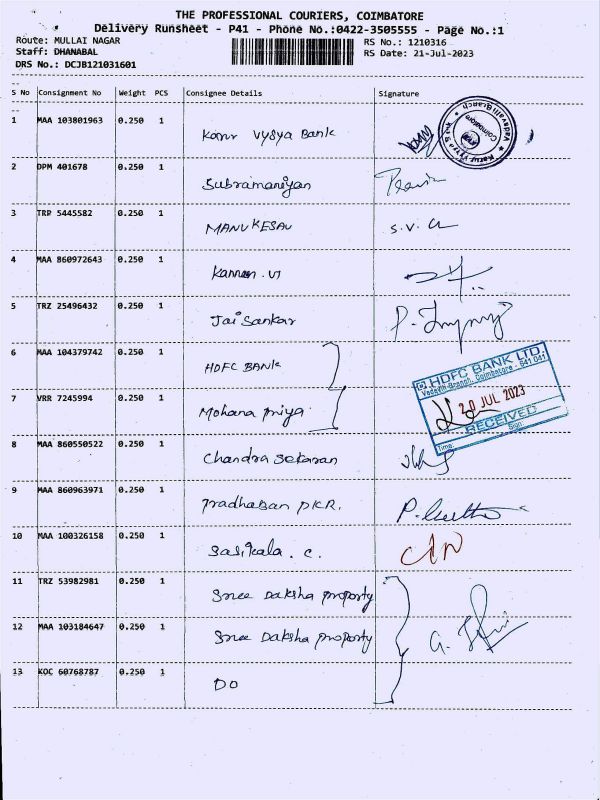 THE PROFESSIONAL COURIERS, COIMBATORE
Delivery Runsheet - P41 - Phone No.:0422-3505555 - Page No.:1
Route: MULLAI NAGAR
RS No.: 1210316
Staff: DHANABAL
RS Date: 21-Jul-2023
DRS No.: DCJB121031601
S No Consignment No Weight PCS Consignee Details Signature
1 MAA 103801963 0.250 1 Karur Vysya Bank
2 DPM 401678 0.250 1 Subramaniyan
3 TRP 5445582 0.250 1 MANUKESAV S.V.
4 MAA 860972643 0.250 1 Kannan. V
5 TRZ 25496432 0.250 1 Jai Sankar
6 MAA 104379742 0.250 1 HDFC BANK
HDFC BANK LTD.
Coimbatore - 641 041
20 JUL 2023
RECEIVED
Time: Sign:
7 VRR 7245994 0.250 1 Mohana priya
8 MAA 860550522 0.250 1 Chandra sekaran
9 MAA 860963971 0.250 1 pradhaban P.K.R.
10 MAA 100326158 0.250 1 Sasikala . C.
11 TRZ 53982981 0.250 1 Sree Daksha property
12 MAA 103184647 0.250 1 Sree Daksha property
13 KOC 60768787 0.250 1 DO